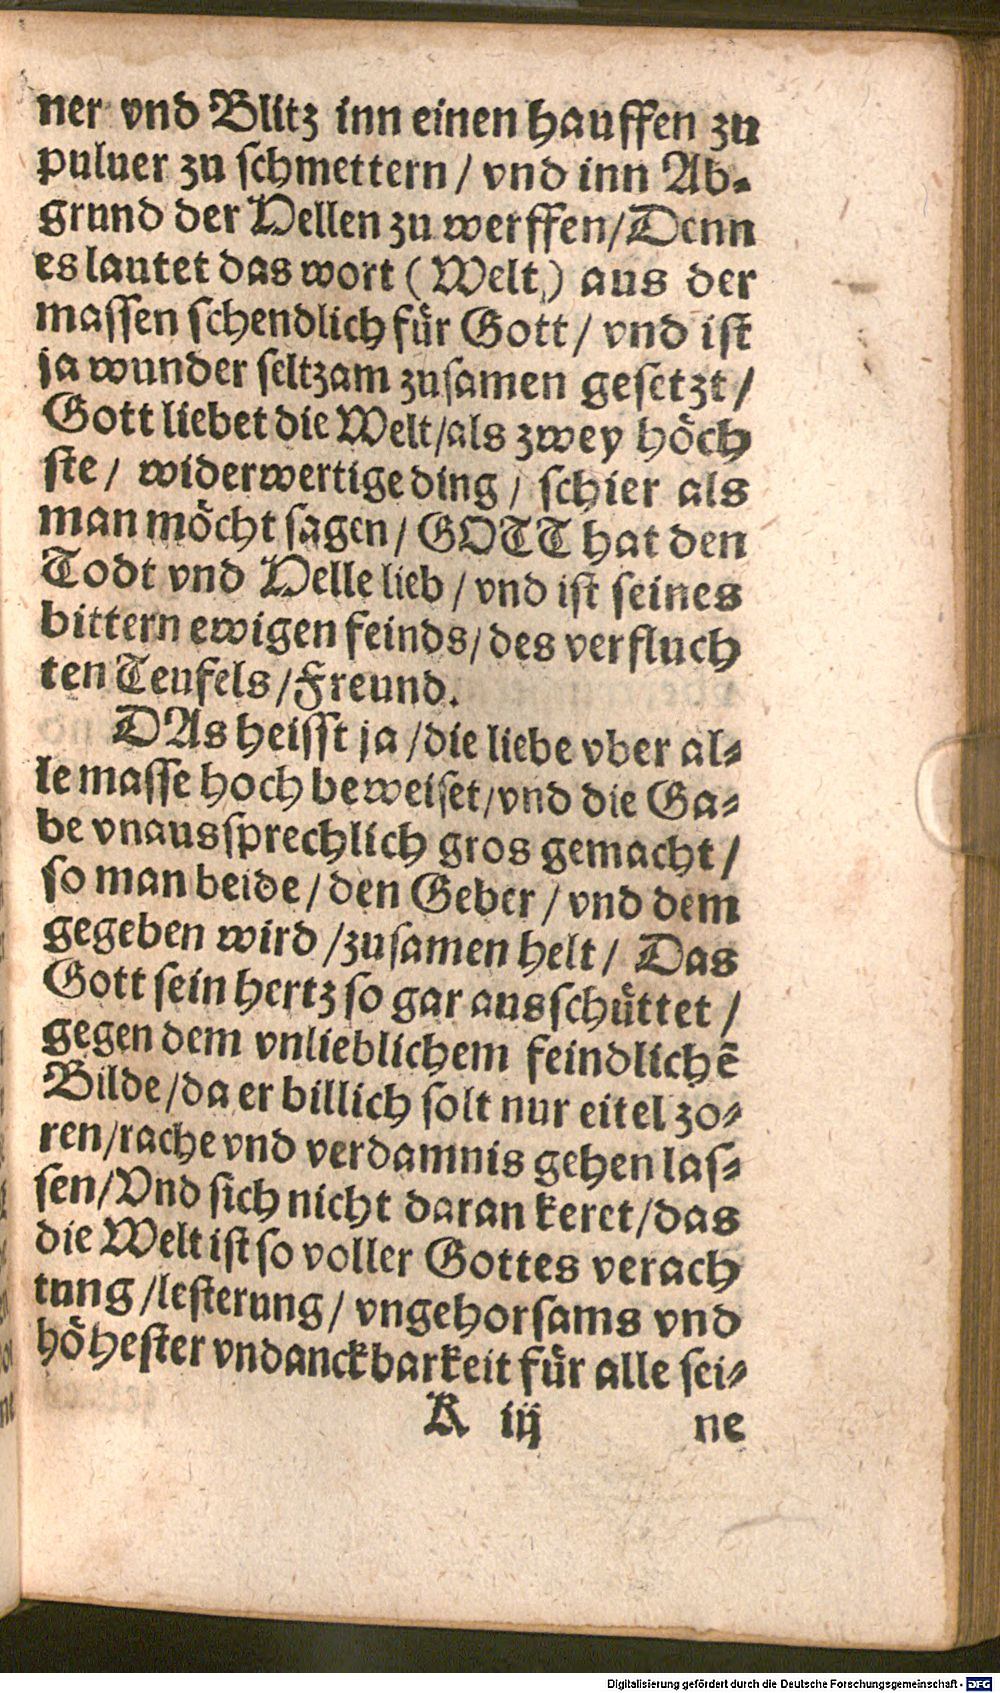 ner vnd Blitz inn einen hauffen zu
puluer zu schmettern / vnd inn Ab-
grund der Hellen zu werffen / Denn
es lautet das wort (Welt) aus der
massen schendlich für Gott / vnd ist
ja wunder seltzam zusamen gesetzt /
Gott liebet die Welt / als zwey höch
ste / widerwertige ding / schier als
man möcht sagen / GOTT hat den
Todt vnd Helle lieb / vnd ist seines
bittern ewigen feinds / des verfluch
ten Teufels / Freund.
DAs heisst ja / die liebe vber al-
le masse hoch beweiset / vnd die Ga-
be vnaussprechlich gros gemacht /
so man beide / den Geber / vnd dem
gegeben wird / zusamen helt / Das
Gott sein hertz so gar ausschüttet /
gegen dem vnlieblichem feindlichē
Bilde / da er billich solt nur eitel zo-
ren / rache vnd verdamnis gehen las-
sen / Vnd sich nicht daran keret / das
die Welt ist so voller Gottes verach
tung / lesterung / vngehorsams vnd
höhester vndanckbarkeit für alle sei-
K iij ne
Digitalisierung gefördert durch die Deutsche Forschungsgemeinschaft - DFG